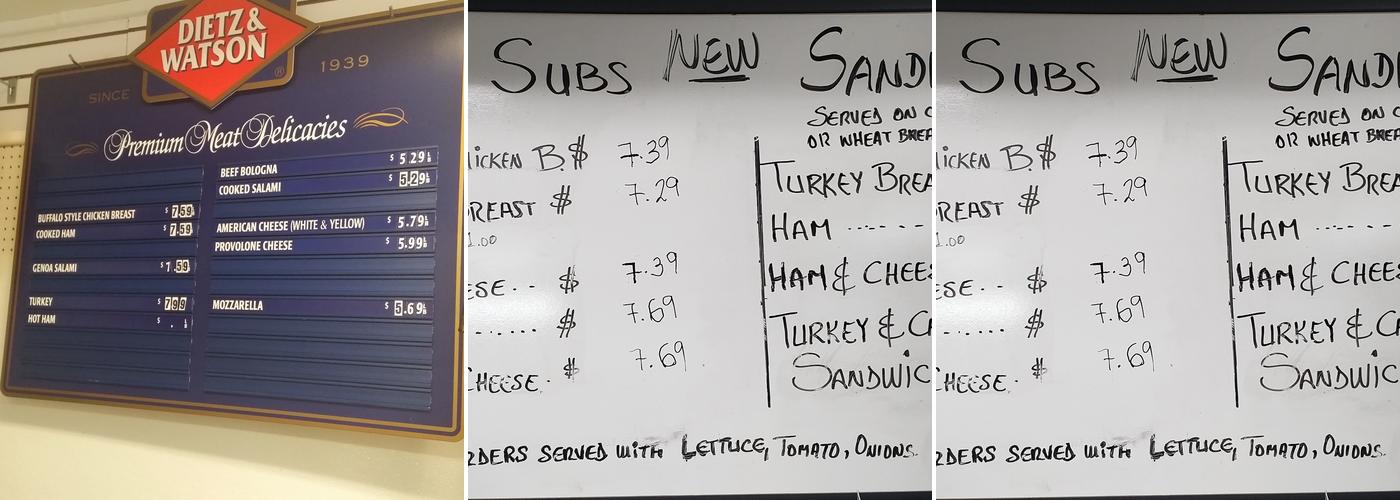 DIETZ &
WATSON
®
SINCE 1939
Premium Meat Delicacies
BUFFALO STYLE CHICKEN BREAST $ 7.59
COOKED HAM $ 7.59
GENOA SALAMI $ .59
TURKEY $ 7.99
HOT HAM $ .
BEEF BOLOGNA $ 5.29
COOKED SALAMI $ 5.29
AMERICAN CHEESE (WHITE & YELLOW) $ 5.79
PROVOLONE CHEESE $ 5.99
MOZZARELLA $ 5.69
SUBS NEW SAND
SERVED ON
OR WHEAT BREA
ICKEN B. $ 7.39
REAST $ 7.29
1.00
ESE.. $ 7.39
...... $ 7.69
CHEESE. $ 7.69
TURKEY BREA
HAM ------
HAM & CHEES
TURKEY & C
SANDWIC
RDERS SERVED WITH LETTUCE, TOMATO, ONIONS.
SUBS NEW SAND
SERVED ON
OR WHEAT BREA
ICKEN B. $ 7.39
REAST $ 7.29
1.00
ESE.. $ 7.39
...... $ 7.69
CHEESE. $ 7.69
TURKEY BREA
HAM ------
HAM & CHEES
TURKEY & C
SANDWIC
RDERS SERVED WITH LETTUCE, TOMATO, ONIONS.